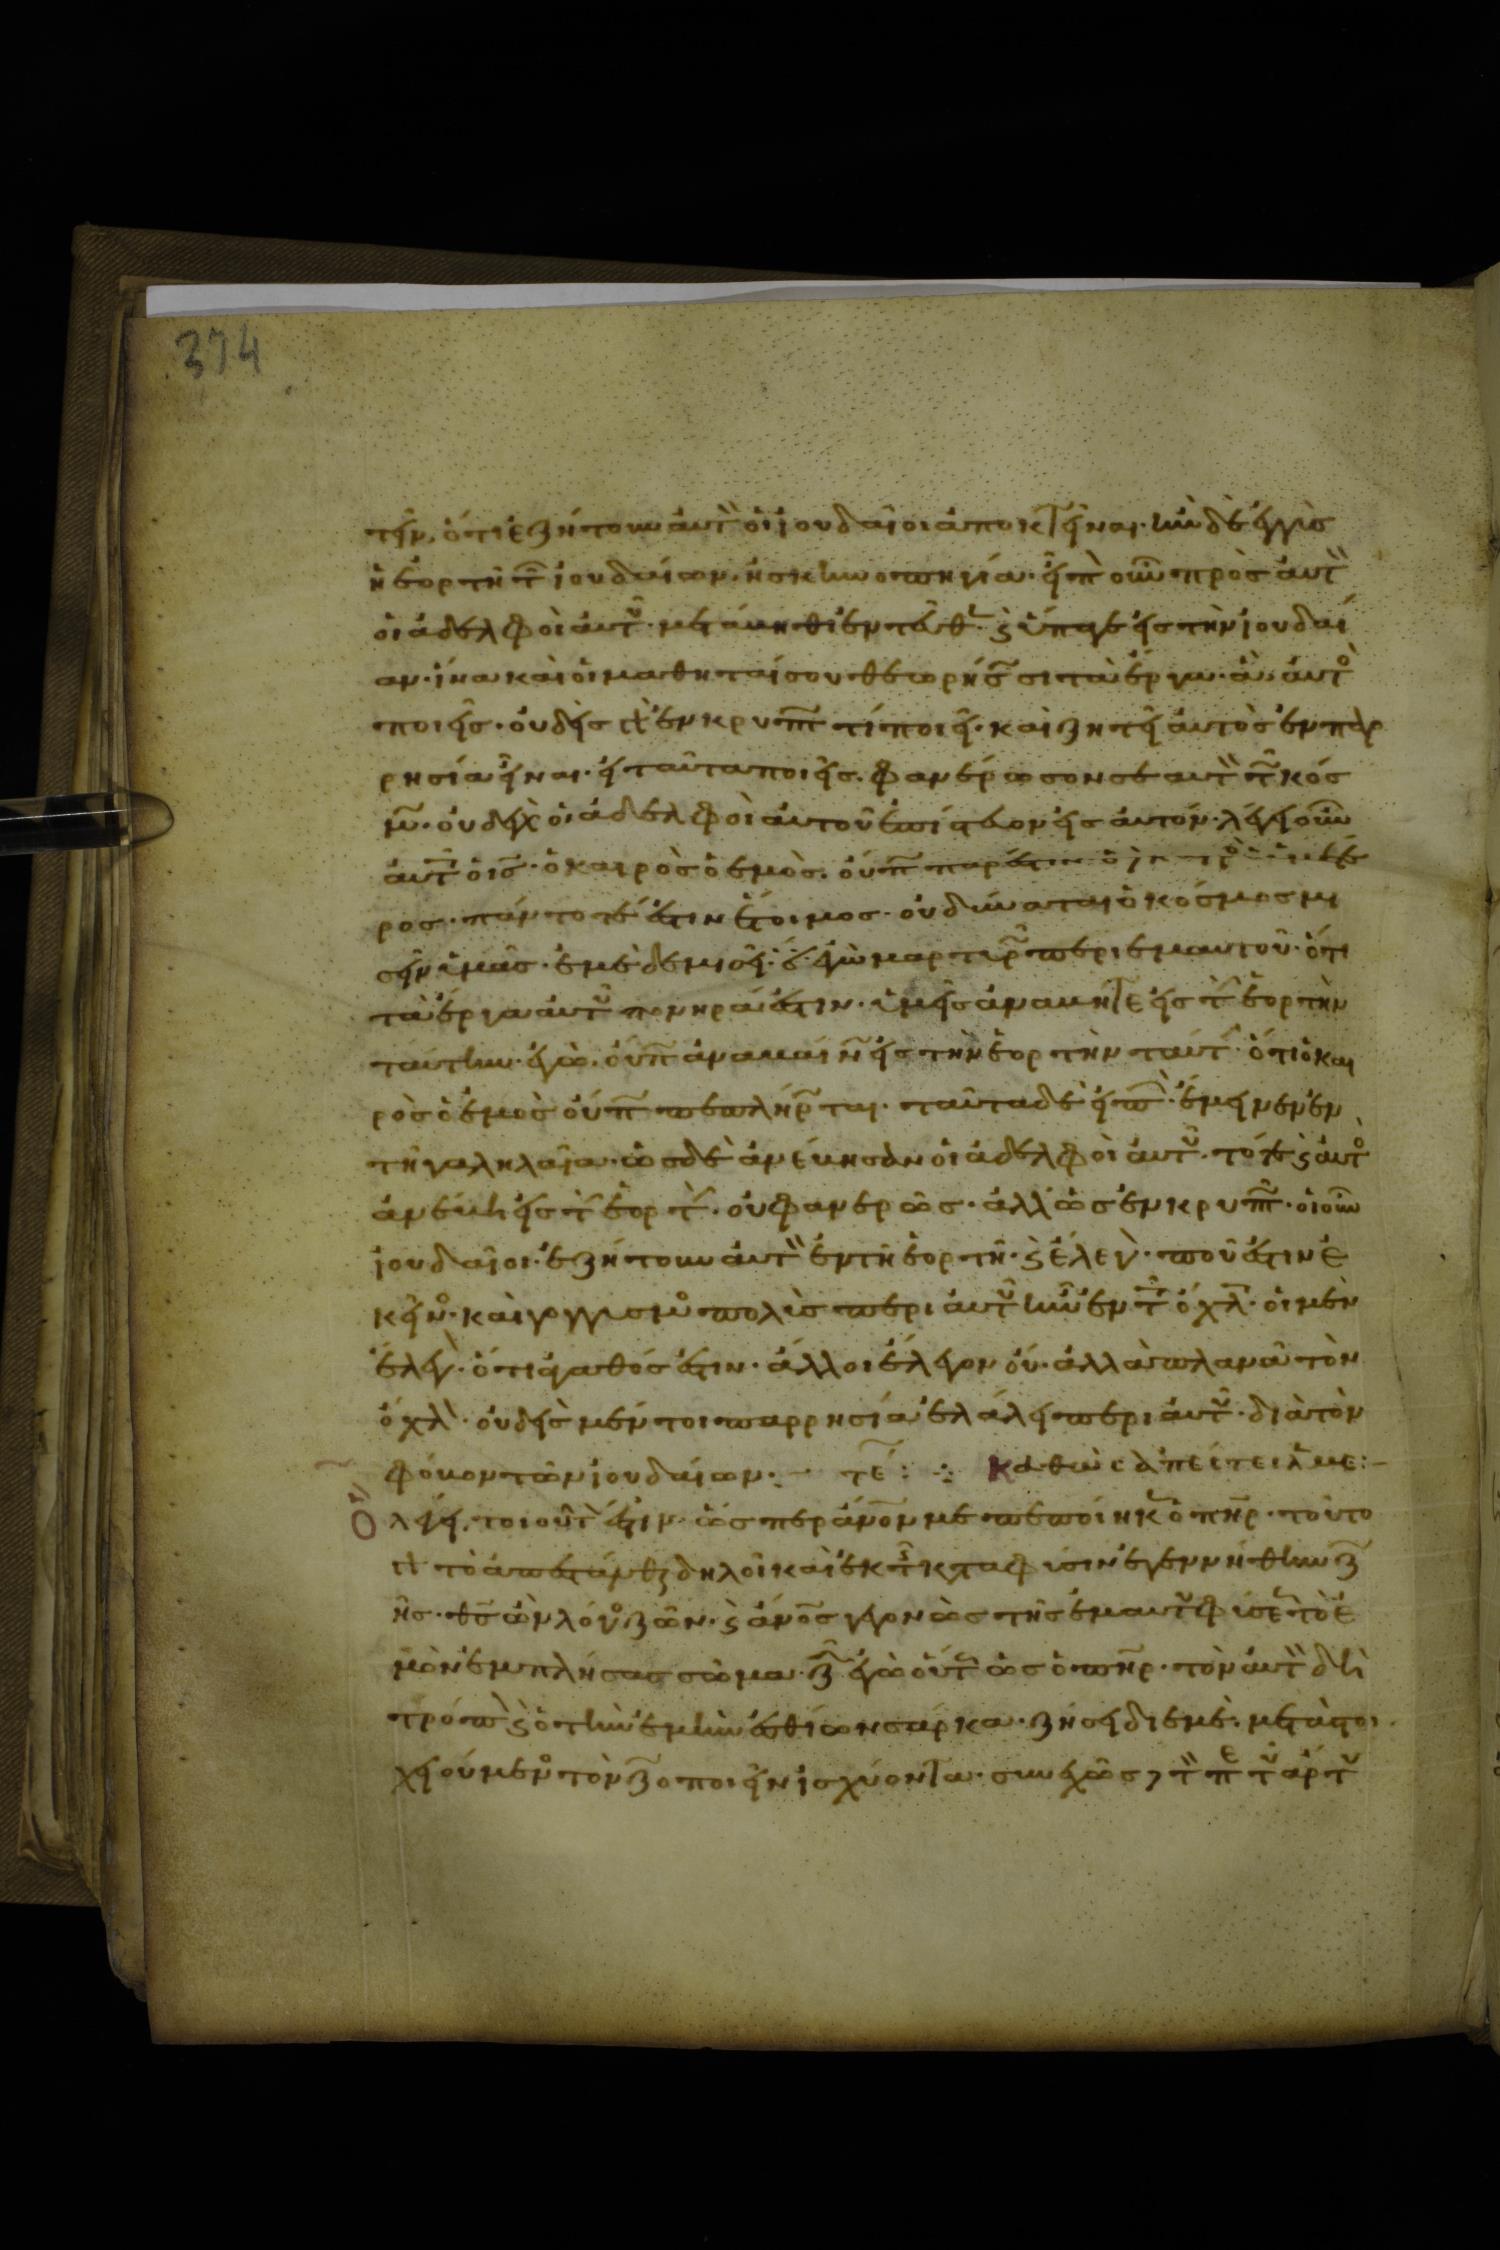 374
τεῖν, ὅτι ἐζήτουν αὐτὸν οἱ ἰουδαῖοι ἀποκτεῖναι. ἦν δὲ ἐγγὺς
ἡ ἑορτὴ τῶν ἰουδαίων. ἡ σκηνοπηγία. εἶπον οὖν πρὸς αὐτὸν
οἱ ἀδελφοὶ αὐτοῦ. μετάβηθι ἐντεῦθεν. καὶ ὕπαγε εἰς τὴν ἰουδαί
αν. ἵνα καὶ οἱ μαθηταί σου θεωρήσωσι τὰ ἔργα. ἃ αὐτὸς
ποιεῖς. οὐδεὶς γὰρ ἐν κρυπτῶ τί ποιεῖ. καὶ ζητεῖ αὐτὸς ἐν παρ
ρησία εἶναι. εἰ ταῦτα ποιεῖς. φανέρωσον σεαυτὸν τῶ κόσ
μω. οὐδὲ γὰρ οἱ ἀδελφοὶ αὐτοῦ ἐπίστευον εἰς αὐτόν. λέγει οὖν
αὐτοῖς ὁ ις. ὁ καιρὸς ὁ ἐμὸς. οὔπω πάρεστιν ὁ δὲ καιρὸς ὁ ὑμέτε
ρος. πάντοτέ ἐστιν ἕτοιμος. οὐ δύναται ὁ κόσμος μι
σεῖν ὑμᾶς. ἐμὲ δὲ μισεῖ. ὅτι ἐγὼ μαρτυρῶ περὶ ἐμαυτοῦ. ὅτι
τὰ ἔργα αὐτοῦ πονηρά ἐστιν. ὑμεῖς ἀνάβητε εἰς τὴν ἑορτὴν
ταύτην. ἐγὼ. οὔπω ἀναβαίνω εἰς τὴν ἑορτὴν ταύτην. ὅτι ὁ και
ρὸς ὁ ἐμὸς οὔπω πεπλήρωται. ταῦτα δὲ εἰπὼν. ἔμεινεν ἐν
τῇ γαλιλαία. ὡς δὲ ἀνέβησαν οἱ ἀδελφοὶ αὐτοῦ. τότε καὶ αὐτὸς
ἀνέβη εἰς τὴν ἑορτὴν. οὐ φανερῶς. ἀλλ' ὡς ἐν κρυπτῶ. οἱ οὖν
ἰουδαῖοι. ἐζήτουν αὐτὸν ἐν τῇ ἑορτῇ. καὶ ἔλεγον. ποῦ ἐστιν ἐ
κεῖνος. καὶ γογγυσμὸς πολὺς περὶ αὐτοῦ ἦν ἐν τῶ ὄχλω. οἱ μὲν
ἔλεγον. ὅτι ἀγαθός ἐστιν. ἄλλοι ἔλεγον οὔ. ἀλλὰ πλανᾶ τὸν
ὄχλον. οὐδεὶς μέντοι παρρησία ἐλάλει περὶ αὐτοῦ. διὰ τὸν
φόβον τῶν ἰουδαίων. τέ: Καθὼς ἀπέστειλέ με:
λέγει. τοιοῦτόν ἐστιν. ὥσπερ ἄνον με πεποίηκεν ὁ πηρ. τοῦτο
γὰρ τὸ ἀπεστάλθαι δηλοῖ καὶ ἐκ τῆς κατὰ φύσιν ἐγεννήθην ζω
ῆς. θς ὢν λόγος ζῶν. καὶ ἄνος γεγονὼς τῆς ἐμαυτοῦ φύσεως τὸ ἐ
μὸν ἐμπλήσας σῶμα. ζῶ ἐγὼ οὕτως ὡς ὁ πηρ. τὸν αὐτὸν δὴ
τρόπον καὶ ὁ τὴν ἐμὴν ἐσθίων σάρκα. ζήσει δι' ἐμὲ. μεταστοι
χειούμενος τὸν ζωοποιεῖν ἰσχύοντα.